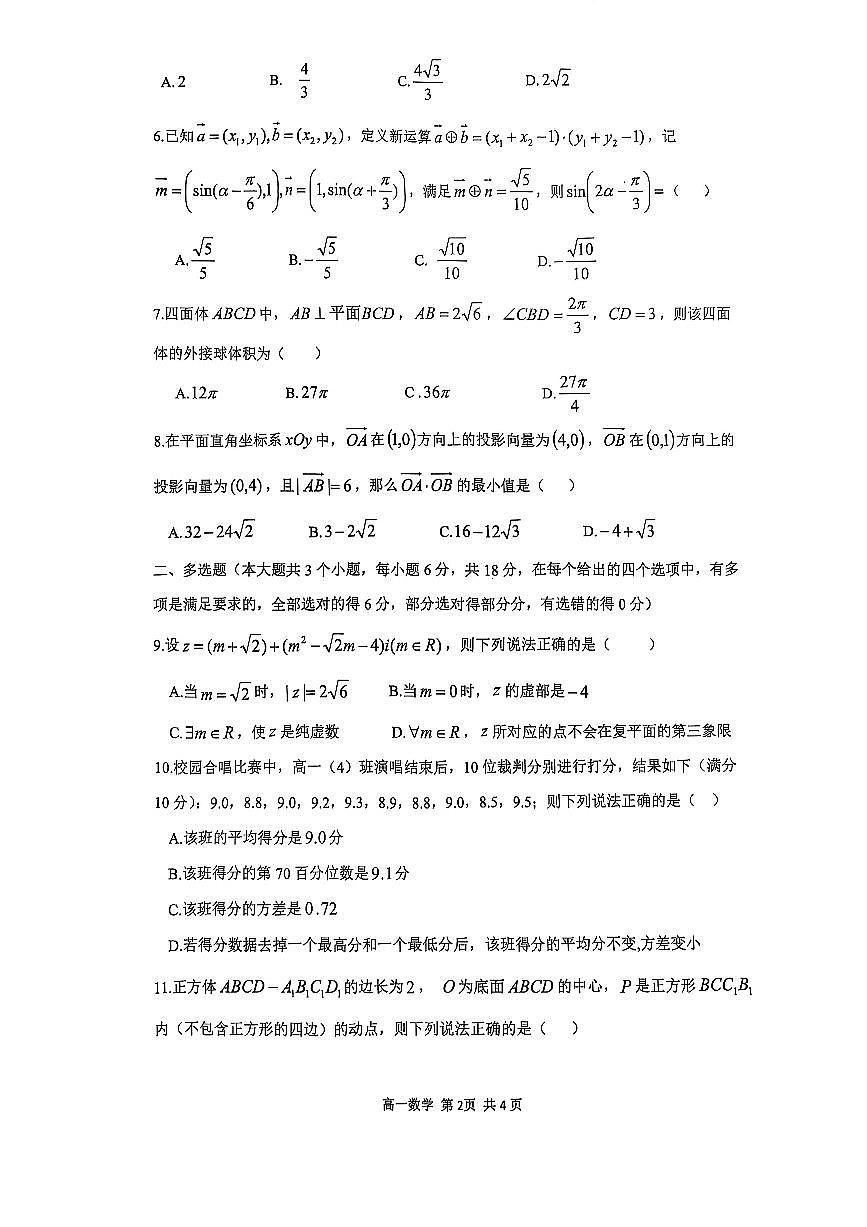 A.2 B. 4/3 C. 4√3/3 D.2√2
6.已知a⃗=(x₁,y₁),b⃗=(x₂,y₂)，定义新运算a⃗⊕b⃗=(x₁+x₂−1)·(y₁+y₂−1)，记
m⃗=(sin(α−π/6),1),n⃗=(1,sin(α+π/3))，满足m⃗⊕n⃗=√5/10，则sin(2α−π/3)=（ ）
A.√5/5 B.−√5/5 C. √10/10 D.−√10/10
7.四面体ABCD中，AB⊥平面BCD，AB=2√6，∠CBD=2π/3，CD=3，则该四面
体的外接球体积为（ ）
A.12π B.27π C.36π D.27π/4
8.在平面直角坐标系xOy中，OA⃗在(1,0)方向上的投影向量为(4,0)，OB⃗在(0,1)方向上的
投影向量为(0,4)，且|AB⃗|=6，那么OA⃗·OB⃗的最小值是（ ）
A.32−24√2 B.3−2√2 C.16−12√3 D.−4+√3
二、多选题（本大题共3个小题，每小题6分，共18分，在每个给出的四个选项中，有多
项是满足要求的，全部选对的得6分，部分选对得部分分，有选错的得0分）
9.设z=(m+√2)+(m²−√2m−4)i(m∈R)，则下列说法正确的是（ ）
A.当m=√2时，|z|=2√6 B.当m=0时，z的虚部是−4
C.∃m∈R，使z是纯虚数 D.∀m∈R，z所对应的点不会在复平面的第三象限
10.校园合唱比赛中，高一（4）班演唱结束后，10位裁判分别进行打分，结果如下（满分
10分）：9.0，8.8，9.0，9.2，9.3，8.9，8.8，9.0，8.5，9.5；则下列说法正确的是（ ）
A.该班的平均得分是9.0分
B.该班得分的第70百分位数是9.1分
C.该班得分的方差是0.72
D.若得分数据去掉一个最高分和一个最低分后，该班得分的平均分不变,方差变小
11.正方体ABCD−A₁B₁C₁D₁的边长为2， O为底面ABCD的中心，P是正方形BCC₁B₁
内（不包含正方形的四边）的动点，则下列说法正确的是（ ）
高一数学 第2页 共4页